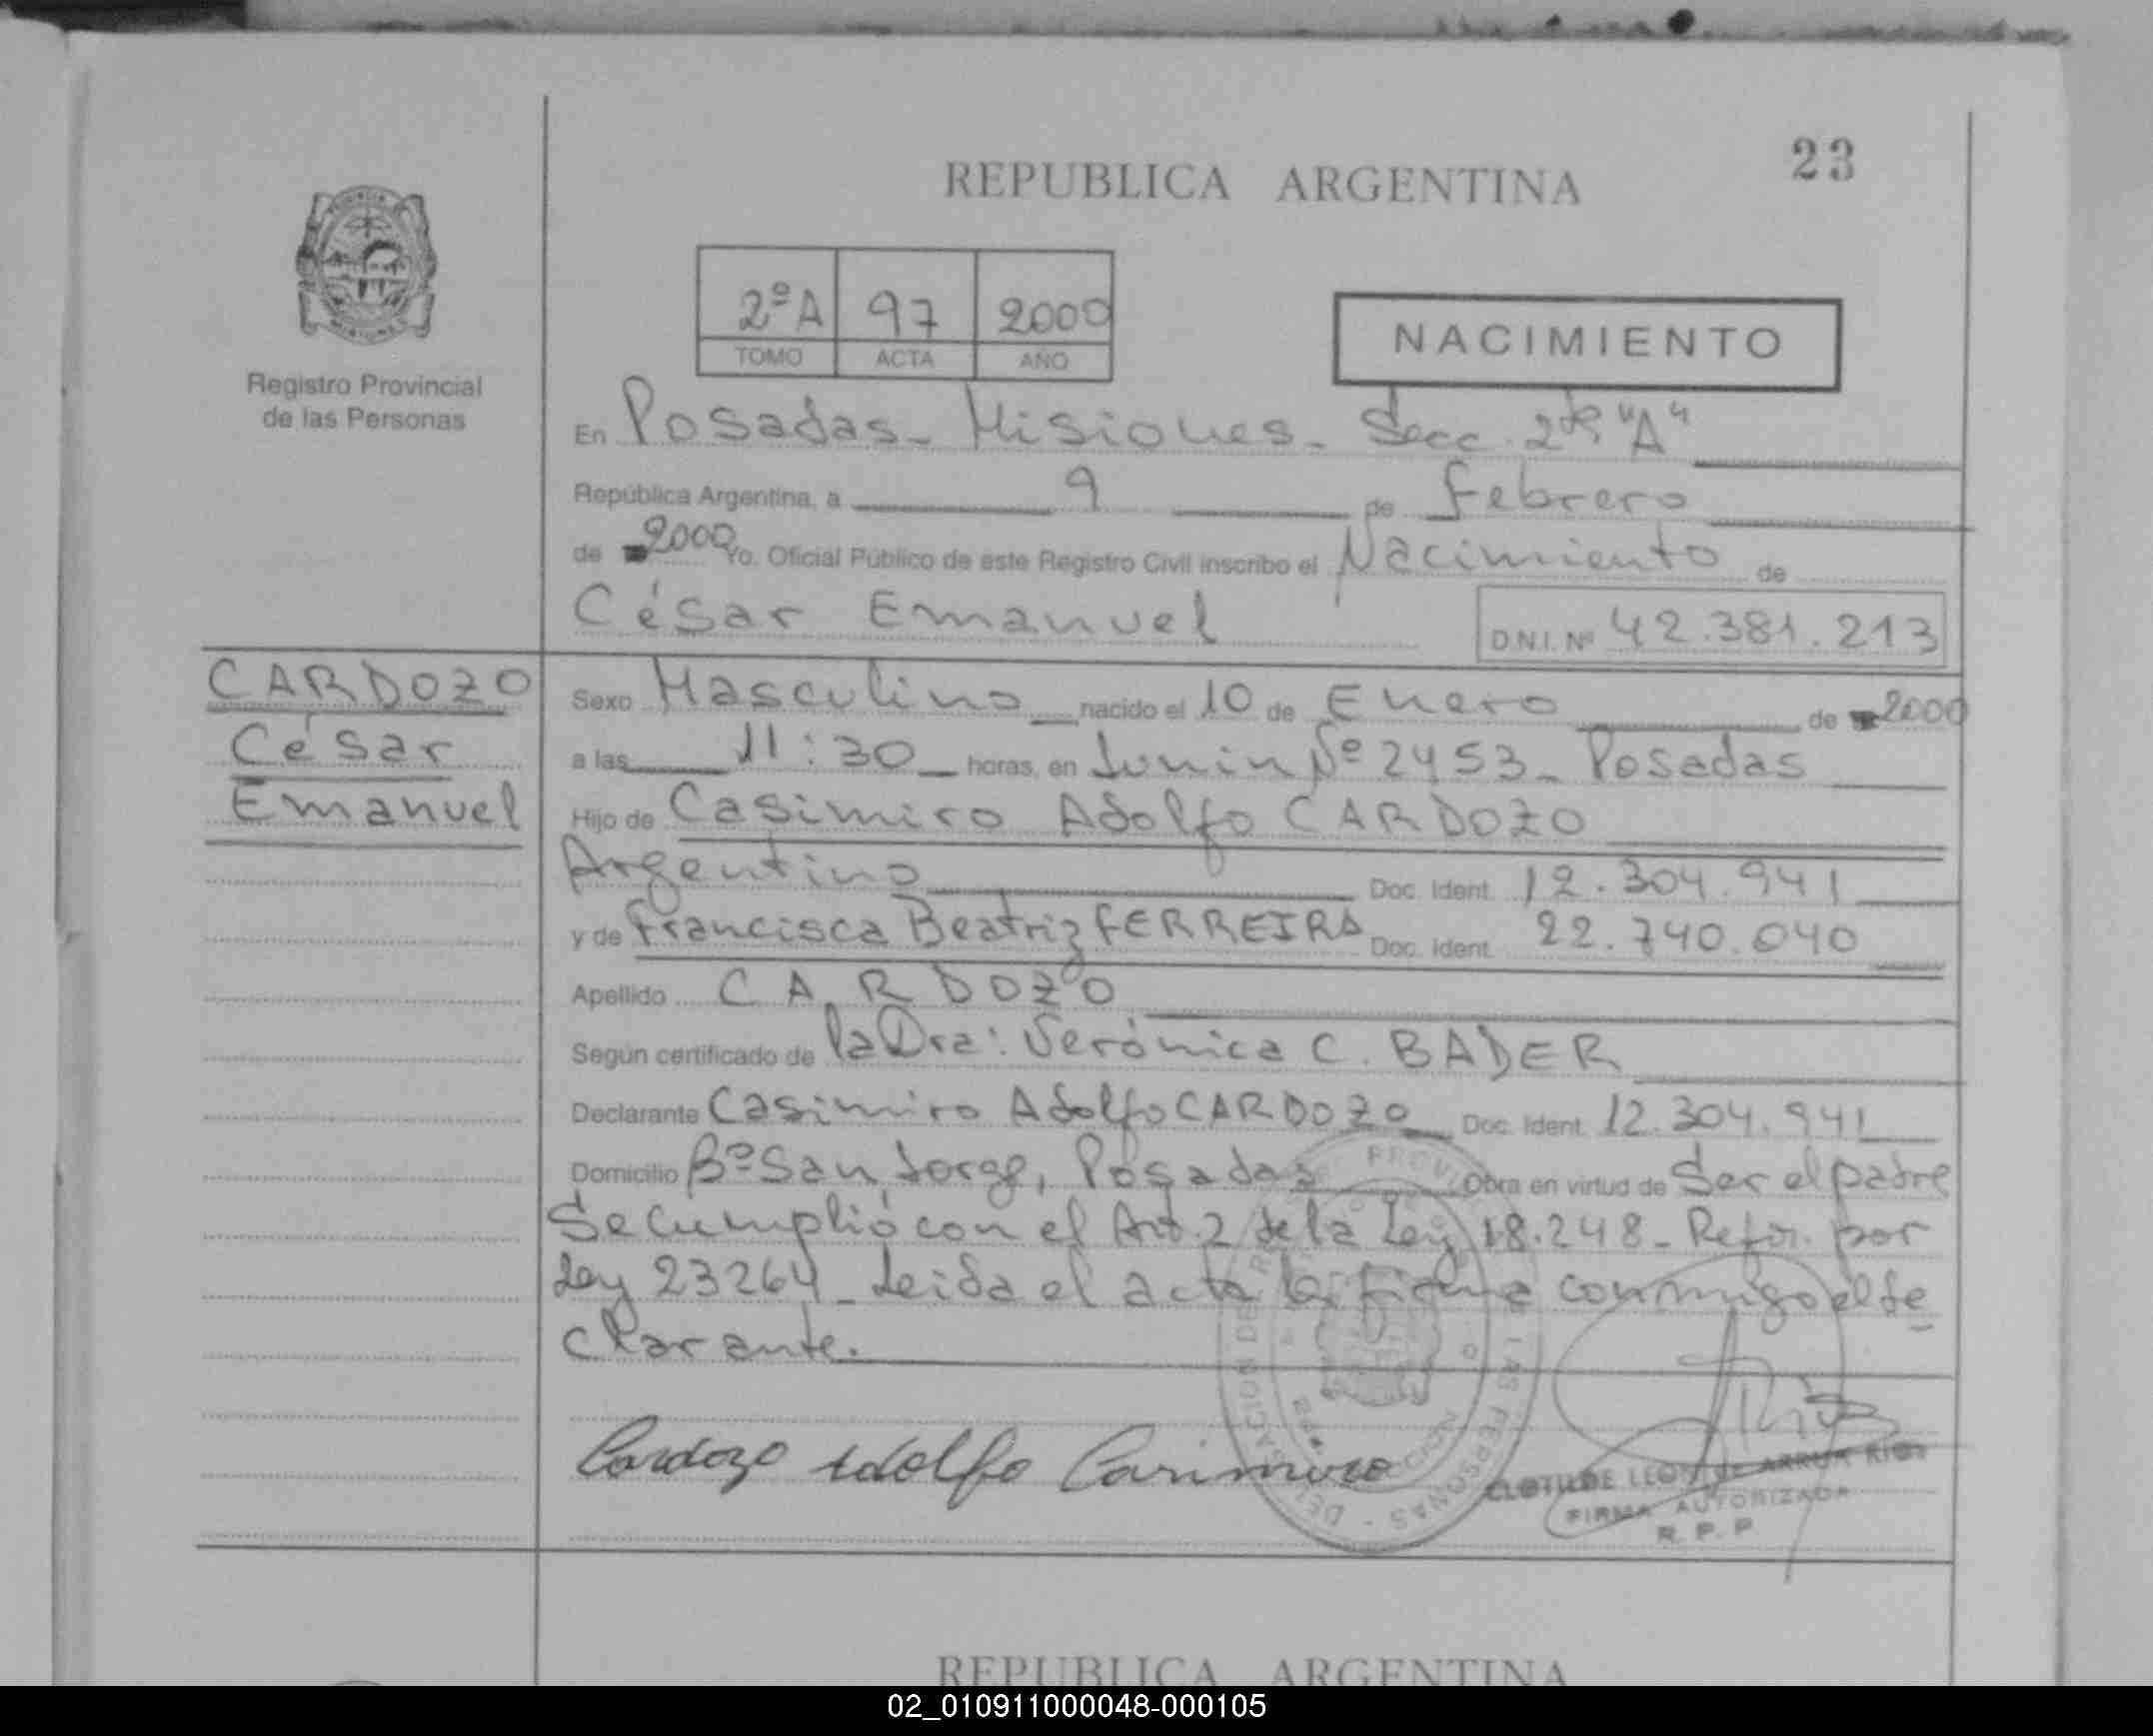 23
REPUBLICA ARGENTINA
2º A 97 2000
TOMO ACTA AÑO
NACIMIENTO
Registro Provincial
de las Personas
En Posadas - Misiones - Secc. 2da "A"
República Argentina, a 9 de Febrero
de 2000 Yo, Oficial Público de este Registro Civil inscribo el Nacimiento de
César Emanuel D.N.I. Nº 42.381.213
CARDOZO
César
Emanuel
Sexo Masculino nacido el 10 de Enero de 2000
a las 11:30 horas, en Junin Nº 2453 - Posadas
Hijo de Casimiro Adolfo CARDOZO
Argentino Doc. Ident. 12.304.941
y de Francisca Beatriz FERREIRA Doc. Ident. 22.740.040
Apellido CARDOZO
Según certificado de la Dra: Verónica C. BADER
Declarante Casimiro Adolfo CARDOZO Doc. Ident. 12.304.941
Domicilio Bº San Jorge, Posadas Obra en virtud de Ser el padre
Se cumplió con el Art. 2 de la Ley 18.248 - Refor. por
Ley 23264 - Leida el acta la firma conmigo el de
clarante.
Cardozo Adolfo Casimiro
CLOTILDE LEON DE ARRUA RIOS
FIRMA AUTORIZADA
R. P. P
REPUBLICA ARGENTINA
02_010911000048-000105